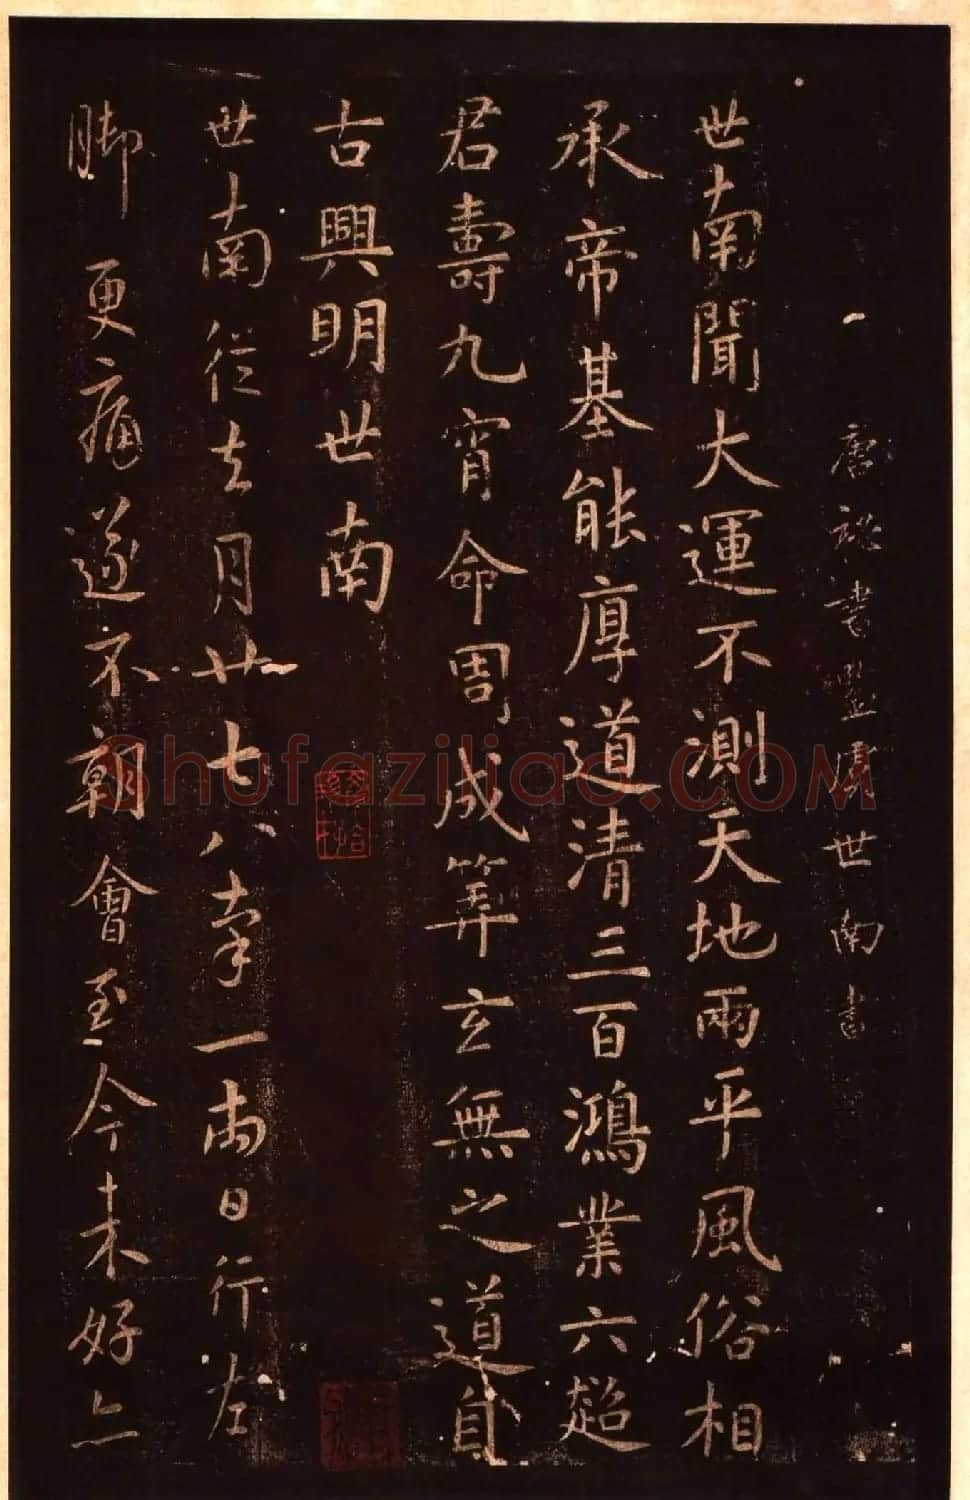 唐秘書監虞世南書
世南聞大運不測天地兩平風俗相
承帝基能厚道清三百鴻業六超
君壽九霄命周成筭玄無之道自
古興明世南
世南從去月廿七八率一兩日行左
脚更痛遂不朝會至今未好亦
Shufaziliao.com